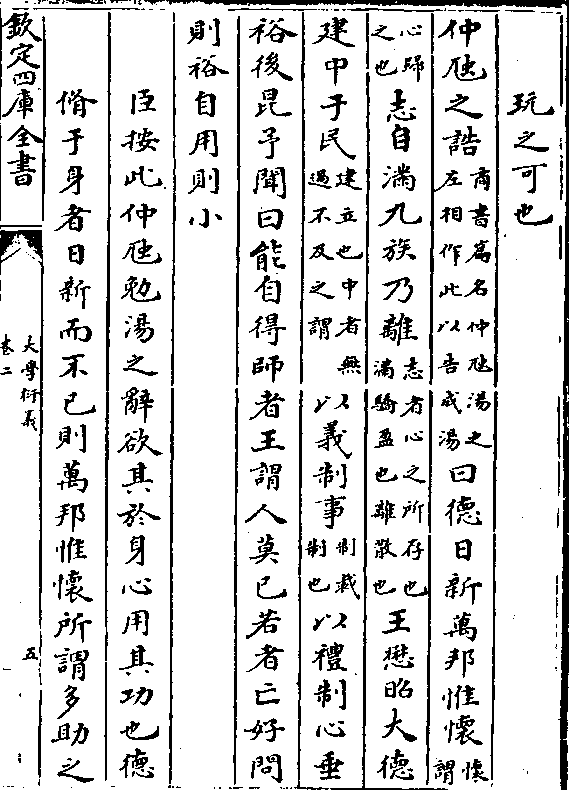 玩之可也
仲虺之誥商書篇名仲虺湯之左相作此以告成湯曰德日新萬邦惟懷懷謂
心歸之也志自滿九族乃離志者心之所存也滿驕盈也離散也王懋昭大德
建中于民建立也中者無過不及之謂以義制事制裁制也以禮制心垂
裕後昆予聞曰能自得師者王謂人莫已若者亡好問
則裕自用則小
臣按此仲虺勉湯之辭欲其於身心用其功也德
脩于身者日新而不已則萬邦惟懷所謂多助之
欽定四庫全書
大學衍義
卷二
五